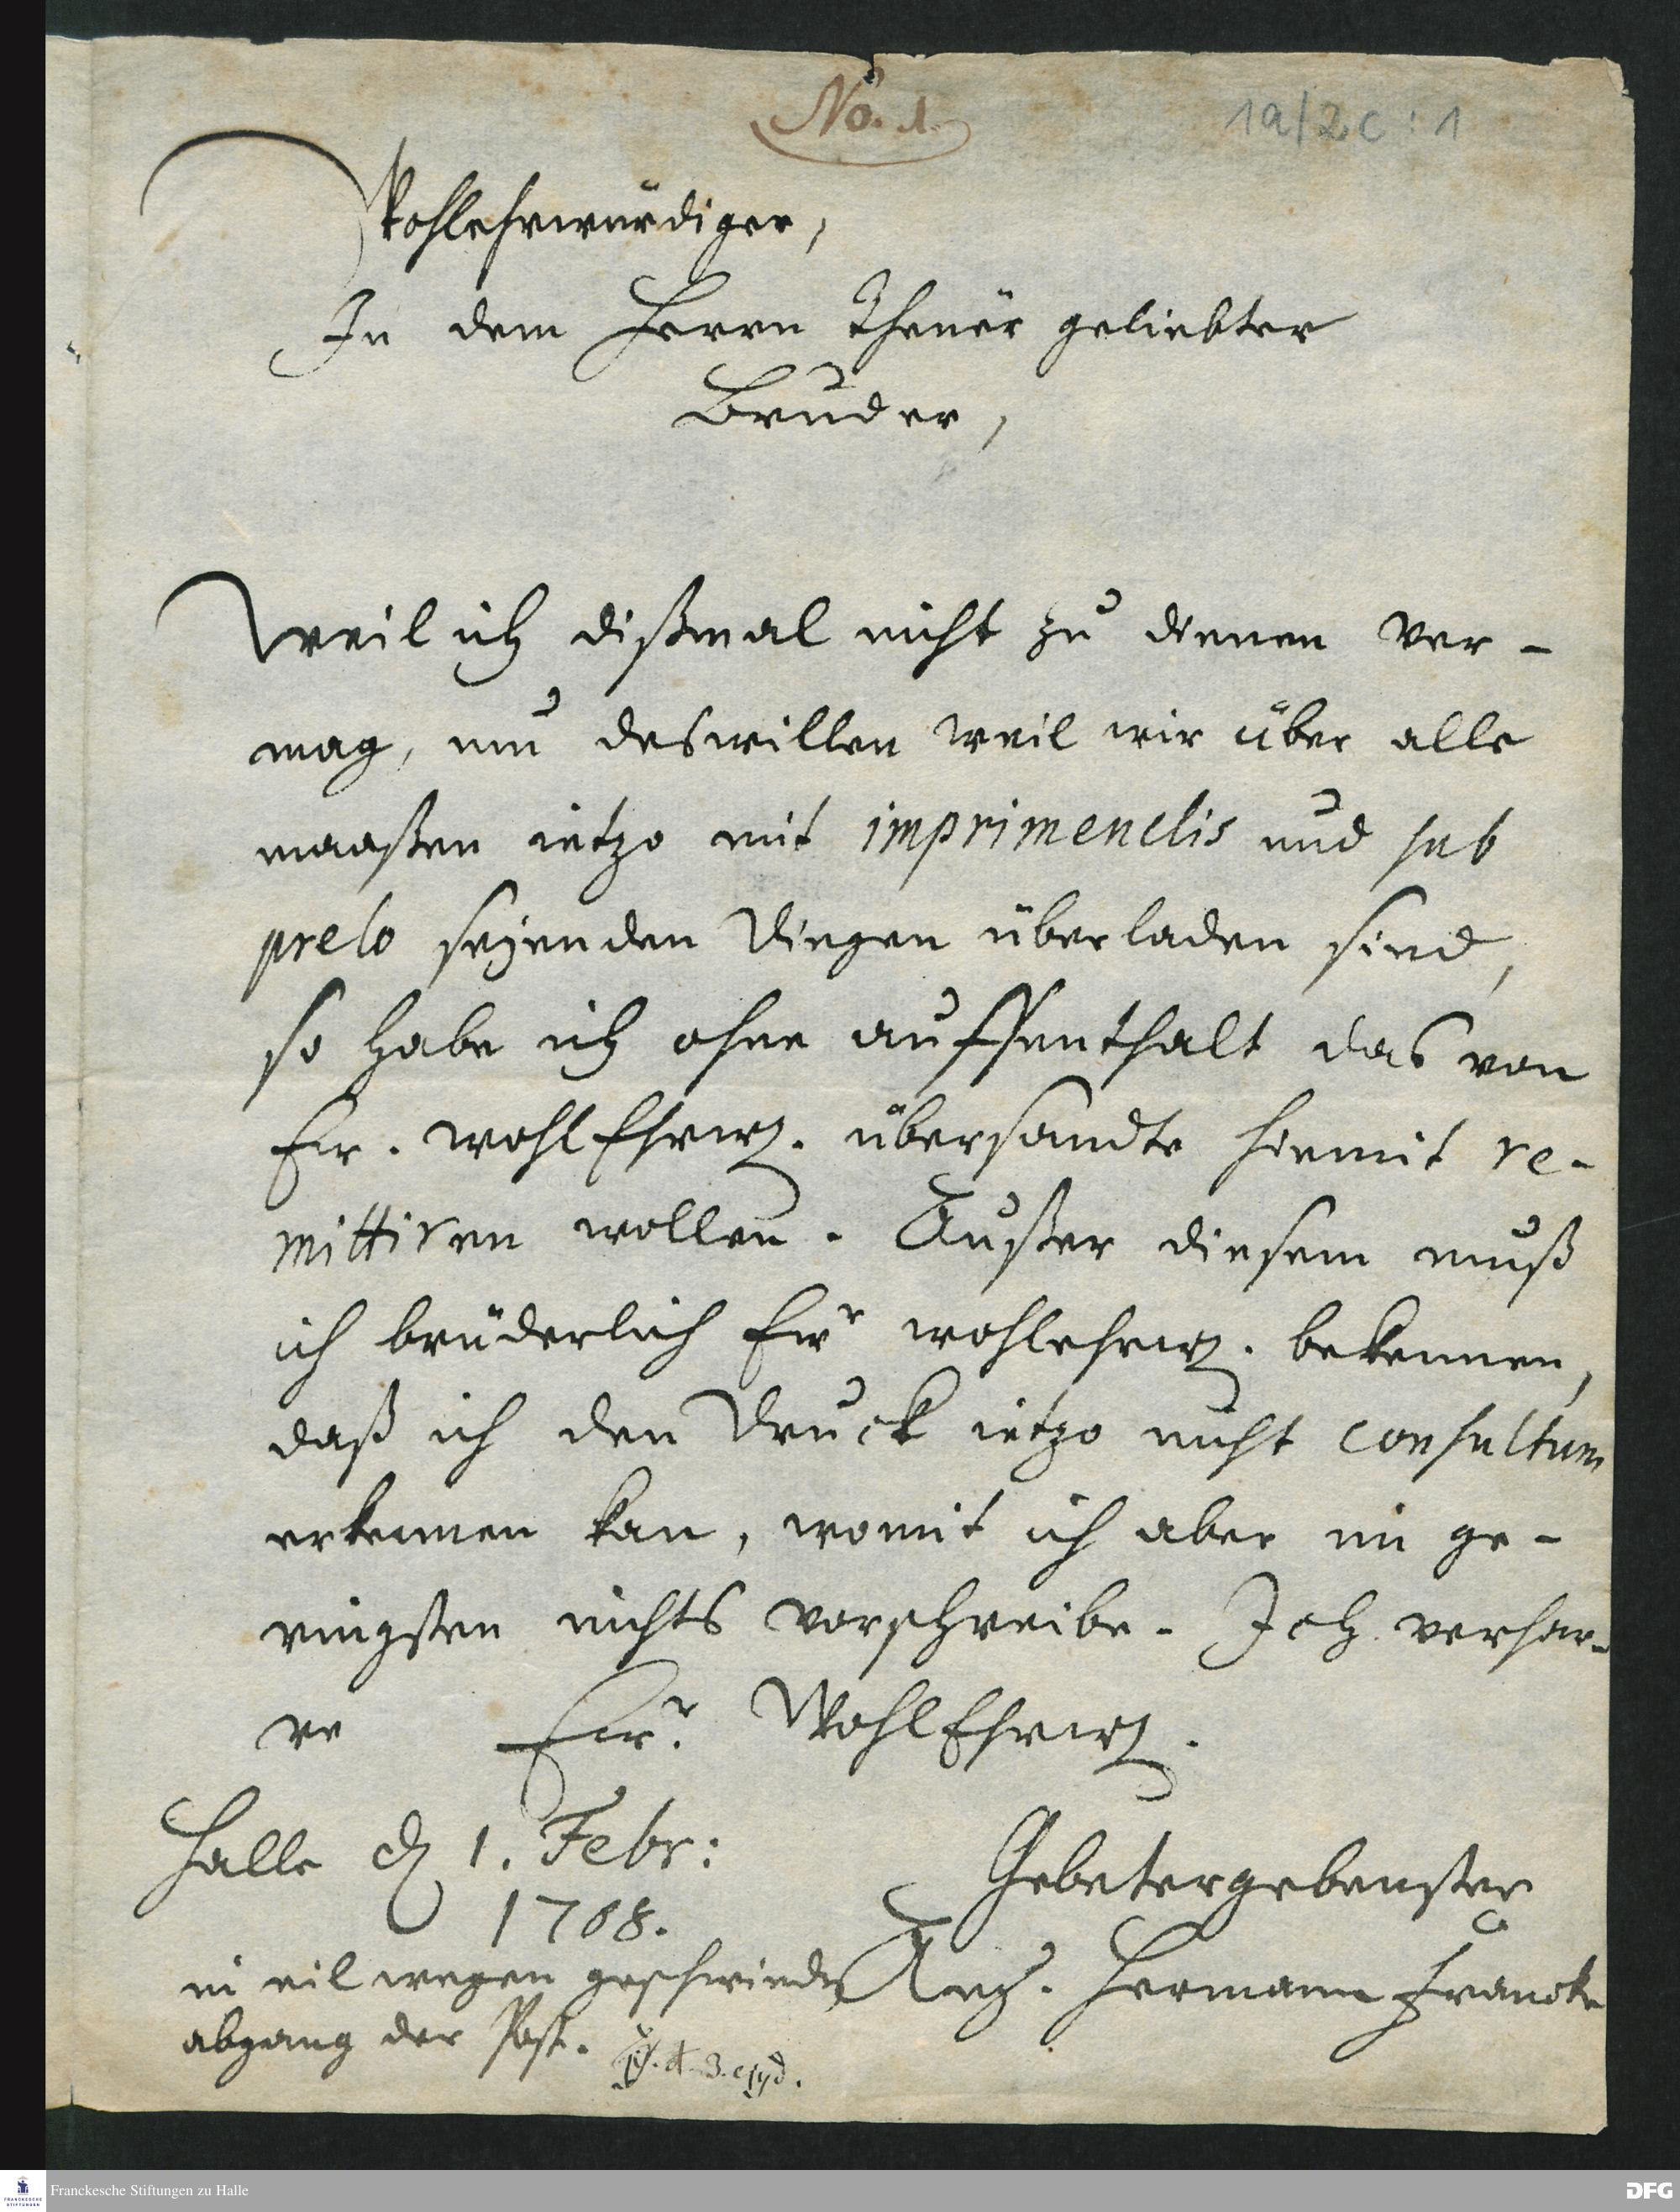 No. 1.
1a/2c : 1
Wohlehrwürdiger,
In dem Herrn theuer geliebter
Bruder,
Weil ich dißmal nicht zu dienen ver-
mag, um deswillen weil wir über alle
maaßen ietzo mit imprimendis und sub
prelo seyenden Dingen überladen sind,
so habe ich ohne auffenthalt das von
Ew. wohlEhrw. übersandte hiemit re-
mittiren wollen. Außer diesem muß
ich brüderlich Ewr wohlehrw. bekennen,
daß ich den Druck ietzo nicht consultum
erkennen kan, womit ich aber im ge-
ringsten nichts vorschreibe. Ich verhar-
re Ewr. WohlEhrw.
Halle d 1. Febr:
1708.
Gebetergebenster
in eil wegen geschwinden
Aug. Hermann Francke
abgang der Post.
d. 3.
Franckesche Stiftungen zu Halle
DFG